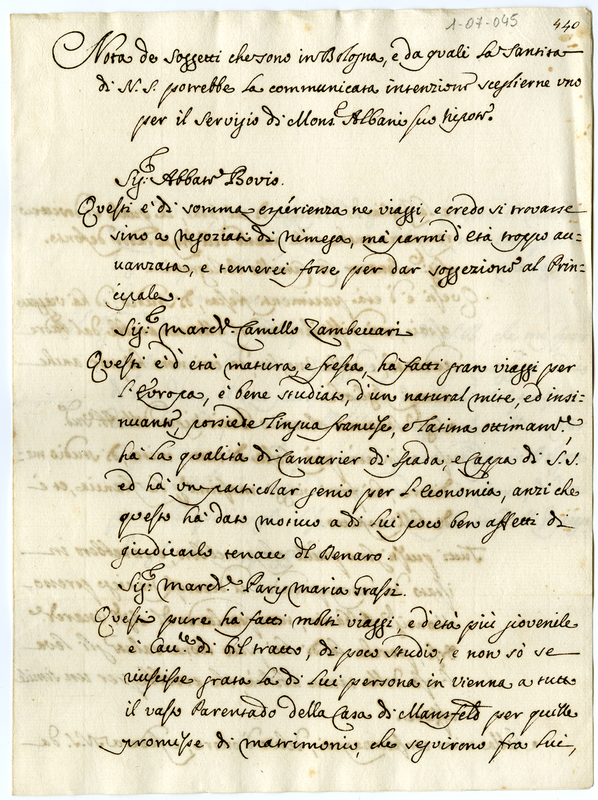 1-07-045
440
Nota de Soggetti che sono in Bologna, e da quali la Santità
di N. S. potrebbe la communicata intenzione sceglierne uno
per il servizio di Mons.r Albani suo Nipote.
Sig.r Abbate Bovio.
Questi è di somma esperienza ne viaggi, e credo si trovasse
sino a negoziati di Nimega, mà parmi d'età troppo au=
uanzata, e temerei forse per dar soggezione al Prin=
cipale.
Sig.r March.e Camillo Zambeccari
Questi è d'età matura, e fresca, hà fatti gran viaggi per
l'Europa, è bene studiato, d'un natural mite, ed insi=
nuante, possiede lingua francese, e latina ottimam.te,
hà la qualità di Camarier di Spada, e Cappa di S. S.
ed hà un particolar genio per l'Economia, anzi che
questo hà dato motivo a di lui poco ben affetti di
giudicarlo tenace del Denaro.
Sig.r March.e Paris Maria Grassi.
Questi pure hà fatti molti viaggi, e d'età più giovenile
è Cau.re di bil tratto, di poco studio, e non sò se
riuscisse grata la di lui persona in Vienna a tutto
il vasto Parentado della Casa di Mansfeld per quelle
promesse di matrimonio, che seguirono fra lui,